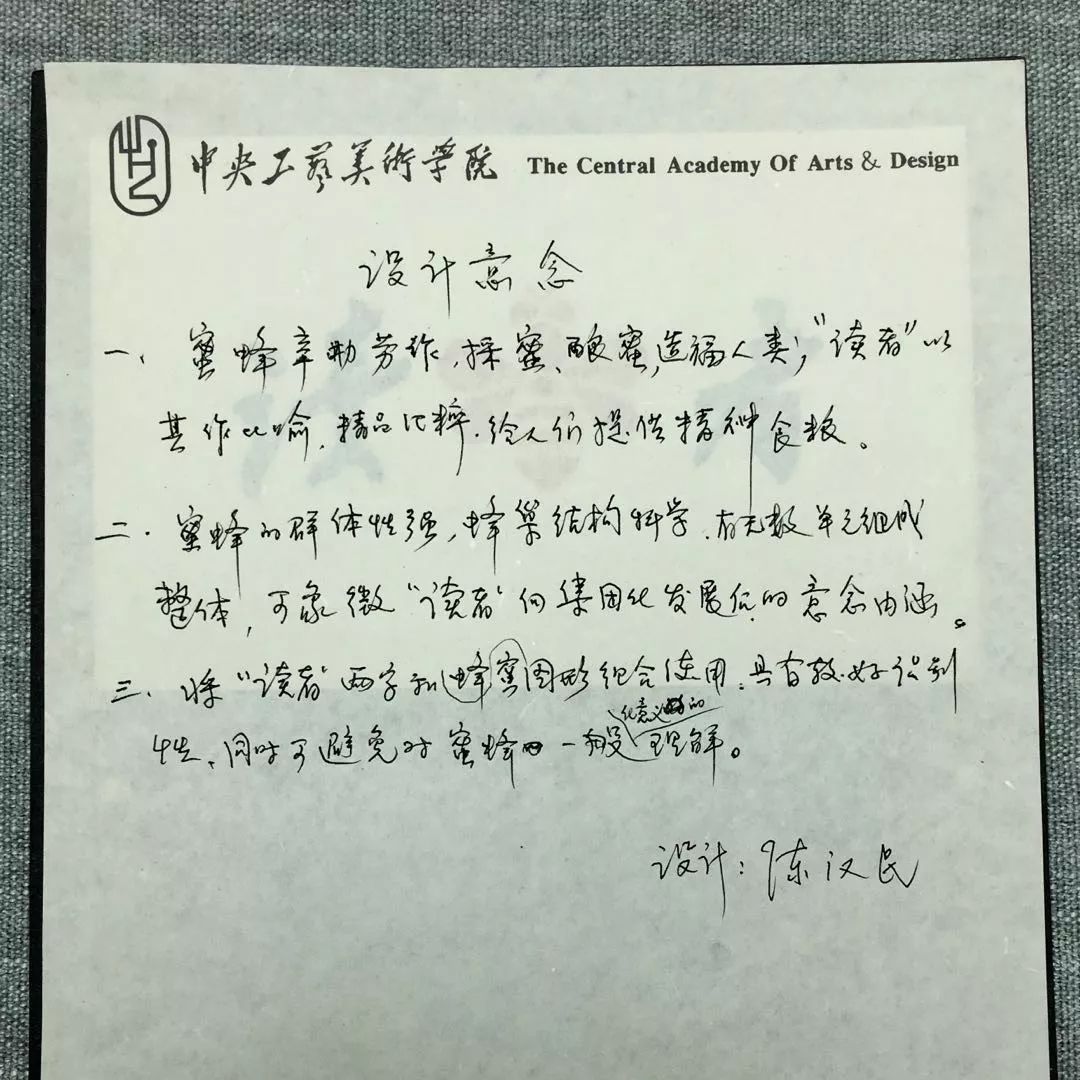 中央工艺美術学院 The Central Academy Of Arts & Design
设计意念
一、蜜蜂辛勤劳作,採蜜、酿蜜,造福人类;"读者"以
其作比喻,精品比粹.给人们提供精神食粮。
二.蜜蜂的群体性强,蜂巢结构科学.有无数单元组成
整体,可象徵"读者"向集团化发展的意念内涵。
三.将"读者"两字和蜂蜜图形组合使用.具有较好识别
性、同时可避免对蜜蜂一般化意义的理解。
设计:陈汉民